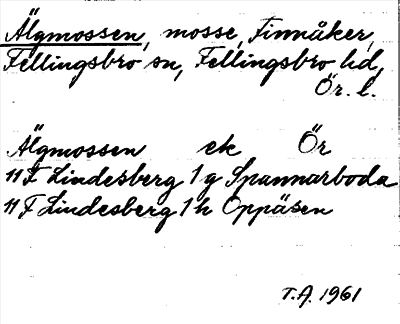 Älgmossen, mosse, Finnåker,
Fellingsbro sn, Fellingsbro hd,
Ör. l.
Älgmossen ek Ör
11 F Lindesberg 1 g Spannarboda
11 F Lindesberg 1 h Oppåsen
T.A. 1961